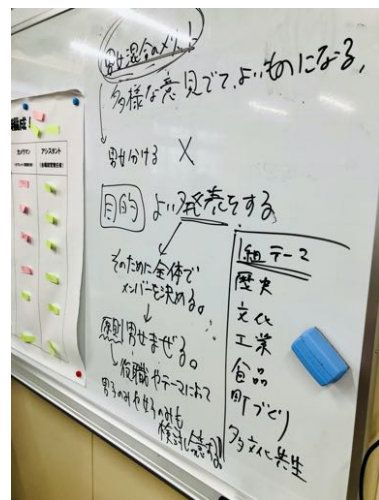 男女混合のメリット
多様な意見がでて、よいものになる。
男女分ける ✕
目的 よい発表をする
そのために全体で
メンバーを決める。
原則男女まぜる。
役職やテーマによって
男子のみや女子のみも
検討し
1組テーマ
歴史
文化
工業
食品
町づくり
多文化共生
編成！
カメラマン
アシスタント